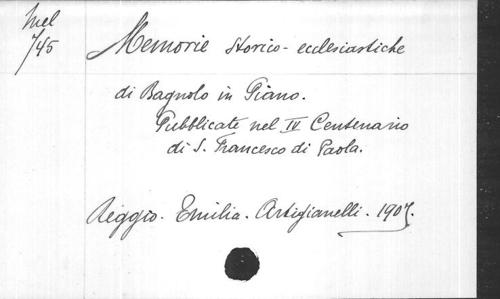 Mel
745
Memorie storico-ecclesiastiche
di Bagnolo in Piano.
Pubblicate nel IV Centenario
di S. Francesco di Paola.
Reggio. Emilia. Artigianelli. 1907.